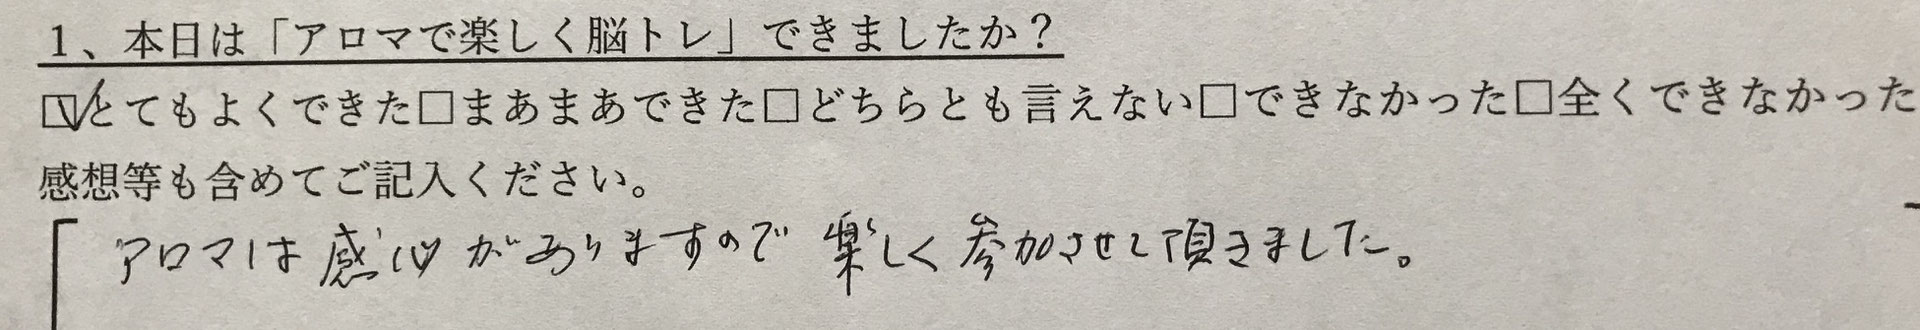 1、本日は「アロマで楽しく脳トレ」できましたか？
☑とてもよくできた□まあまあできた□どちらとも言えない□できなかった□全くできなかった
感想等も含めてご記入ください。
アロマは感心がありますので楽しく参加させて頂きました。